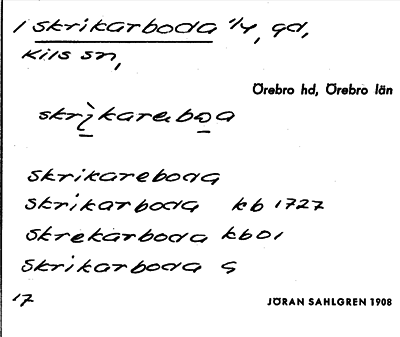 1 Skrikarboda 1/4, gd,
Kils sn,
Örebro hd, Örebro län
skrikareboa
Skrikareboda
Skrikarboda kb 1727
Skrekarboda kb 01
Skrikarboda G
17
JÖRAN SAHLGREN 1908